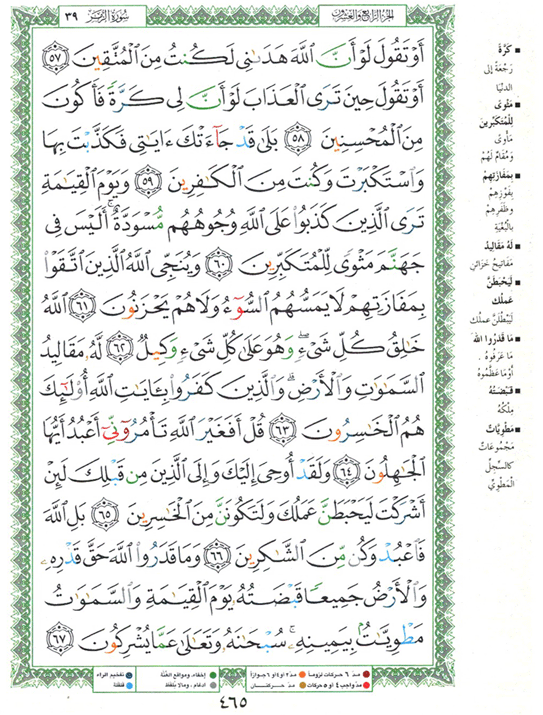 الجزء الرابع والعشرون
سورة الزمر ٣٩
أَوْ تَقُولَ لَوْ أَنَّ ٱللَّهَ هَدَىٰنِى لَكُنتُ مِنَ ٱلْمُتَّقِينَ ٥٧
أَوْ تَقُولَ حِينَ تَرَى ٱلْعَذَابَ لَوْ أَنَّ لِى كَرَّةً فَأَكُونَ
مِنَ ٱلْمُحْسِنِينَ ٥٨ بَلَىٰ قَدْ جَآءَتْكَ ءَايَٰتِى فَكَذَّبْتَ بِهَا
وَٱسْتَكْبَرْتَ وَكُنتَ مِنَ ٱلْكَٰفِرِينَ ٥٩ وَيَوْمَ ٱلْقِيَٰمَةِ
تَرَى ٱلَّذِينَ كَذَبُوا۟ عَلَى ٱللَّهِ وُجُوهُهُم مُّسْوَدَّةٌ ۚ أَلَيْسَ فِى
جَهَنَّمَ مَثْوًى لِّلْمُتَكَبِّرِينَ ٦٠ وَيُنَجِّى ٱللَّهُ ٱلَّذِينَ ٱتَّقَوْا۟
بِمَفَازَتِهِمْ لَا يَمَسُّهُمُ ٱلسُّوٓءُ وَلَا هُمْ يَحْزَنُونَ ٦١ ٱللَّهُ
خَٰلِقُ كُلِّ شَىْءٍ ۖ وَهُوَ عَلَىٰ كُلِّ شَىْءٍ وَكِيلٌ ٦٢ لَّهُۥ مَقَالِيدُ
ٱلسَّمَٰوَٰتِ وَٱلْأَرْضِ ۗ وَٱلَّذِينَ كَفَرُوا۟ بِـَٔايَٰتِ ٱللَّهِ أُو۟لَٰٓئِكَ
هُمُ ٱلْخَٰسِرُونَ ٦٣ قُلْ أَفَغَيْرَ ٱللَّهِ تَأْمُرُوٓنِّىٓ أَعْبُدُ أَيُّهَا
ٱلْجَٰهِلُونَ ٦٤ وَلَقَدْ أُوحِىَ إِلَيْكَ وَإِلَى ٱلَّذِينَ مِن قَبْلِكَ لَئِنْ
أَشْرَكْتَ لَيَحْبَطَنَّ عَمَلُكَ وَلَتَكُونَنَّ مِنَ ٱلْخَٰسِرِينَ ٦٥ بَلِ ٱللَّهَ
فَٱعْبُدْ وَكُن مِّنَ ٱلشَّٰكِرِينَ ٦٦ وَمَا قَدَرُوا۟ ٱللَّهَ حَقَّ قَدْرِهِۦ
وَٱلْأَرْضُ جَمِيعًا قَبْضَتُهُۥ يَوْمَ ٱلْقِيَٰمَةِ وَٱلسَّمَٰوَٰتُ
مَطْوِيَّٰتٌۢ بِيَمِينِهِۦ ۚ سُبْحَٰنَهُۥ وَتَعَٰلَىٰ عَمَّا يُشْرِكُونَ ٦٧
كَرَّةً
رَجْعَةً إلى
الدنيا
مَثْوًى
لِلْمُتَكَبِّرِينَ
مَأوًى
وَمُقَامٌ لَهُمْ
بِمَفَازَتِهِمْ
بِفَوْزِهِمْ
وَظَفَرِهِمْ
بِالْبُغْيَةِ
لَهُ مَقَالِيدُ
مَفَاتِيحُ خَزَائِنِ
لَيَحْبَطَنَّ
عَمَلُكَ
لَيَبْطُلَنَّ عَمَلُك
مَا قَدَرُوا اللهَ
مَا عَرَفُوهُ
أَوْ مَا عَظَّمُوهُ
قَبْضَتُهُ
مِلْكُهُ
مَطْوِيَّاتٌ
مَجْمُوعَاتٌ
كالسِّجِلِّ
الْمَطْوِيِّ
مدّ ٦ حركات لزوماً
مدّ ٢ أو ٤ أو ٦ جوازاً
إخفاء، ومواقع الغُنَّة
تفخيم الراء
مدّ واجب ٤ أو ٥ حركات
مدّ حركتان
إدغام، وما لا يُلفظ
قلقلة
٤٦٥